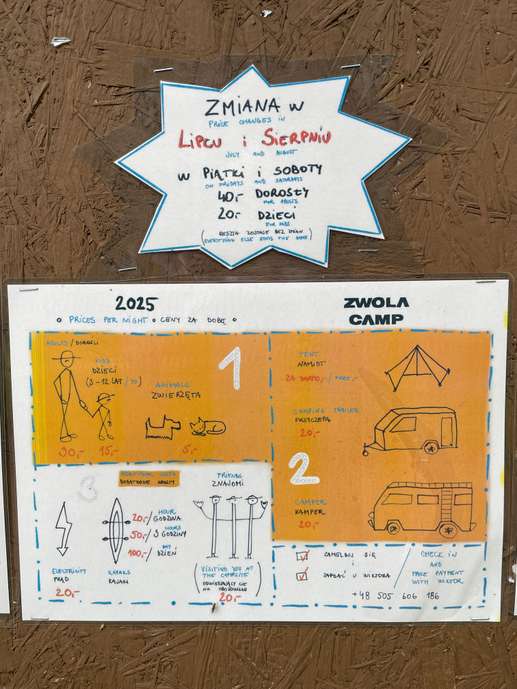 ZMIANA W
PRICE CHANGES IN
LIPCU i SIERPNIU
JULY AND AUGUST
W PIĄTKI i SOBOTY
ON FRIDAYS AND SATURDAYS
40,- DOROSŁY
FOR ADULTS
20,- DZIECI
FOR KIDS
(RESZTA ZOSTAJE BEZ ZMIAN)
(EVERYTHING ELSE STAYS THE SAME)
2025
PRICES PER NIGHT • CENY ZA DOBĘ
ZWOLA
CAMP
ADULTS / DOROŚLI
KIDS
DZIECI
(3-12 LAT/YO)
30,-
15,-
ANIMALS
ZWIERZĘTA
5,-
1
TENT
NAMIOT
ZA DARMO,-/FREE,-
CAMPING TRAILER
PRZYCZEPA
20,-
2
CAMPER
KAMPER
20,-
3
DODATKOWE KOSZTY
ELECTRICITY
PRĄD
20,-
KAYAKS
KAJAKI
20,-/HOUR
GODZINA
50,-/HOURS
3 GODZINY
100,-/DAY
DZIEŃ
FRIENDS
ZNAJOMI
(VISITING YOU AT
THE CAMPSITE)
ODWIEDZAJĄCY CIĘ
20,-
ZAMELDUJ SIĘ
i
ZAPŁAĆ U WIKTORA
CHECK IN
AND
MAKE PAYMENT
WITH WIKTOR
+48 505 606 186